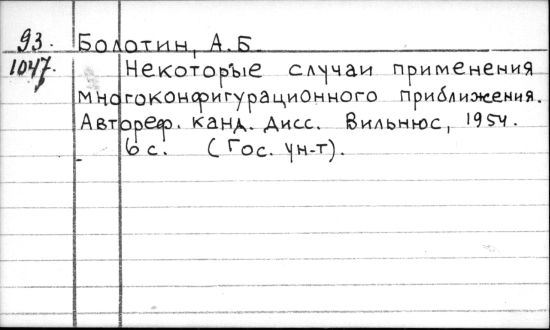 93. Болотин, А.Б.
1047. Некоторые случаи применения
многоконфигурационного приближения.
Автореф. канд. дисс. Вильнюс, 1954.
6 с. (Гос. ун-т).